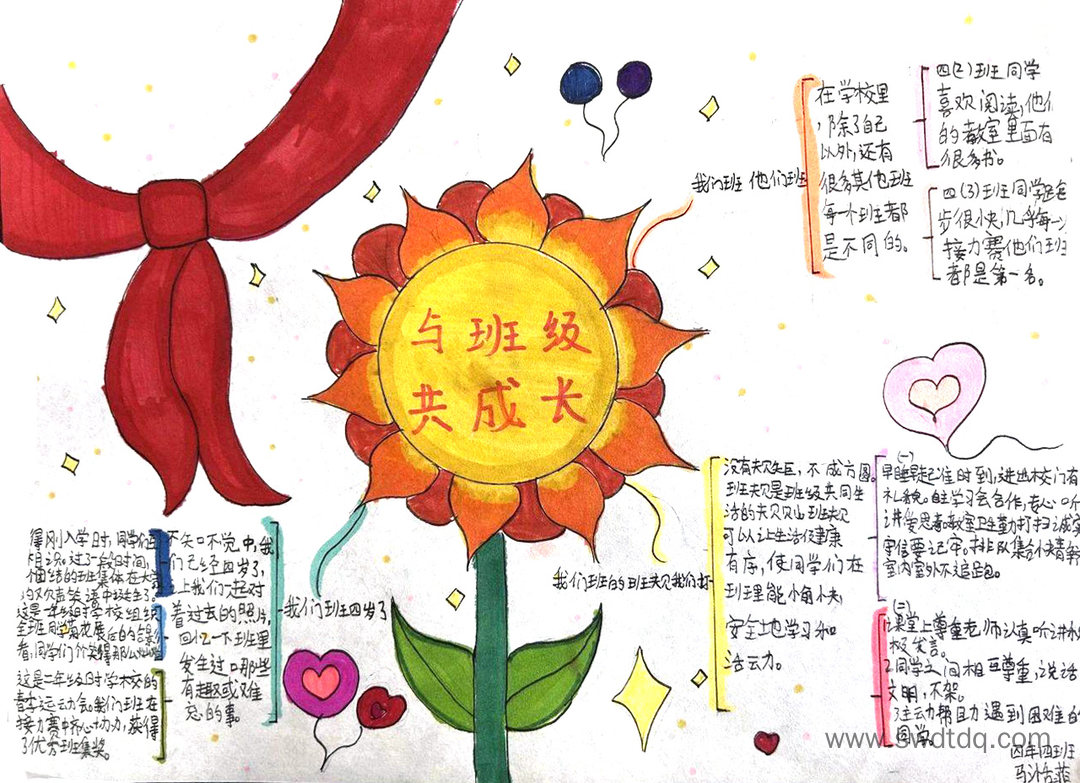 与班级
共成长
我们班 他们班
在学校里
,除了自己
以外,还有
很多其他班
每一个班都
是不同的。
四(2)班同学
喜欢阅读,他们
的教室里面有
很多书。
四(3)班同学跑
步很快,几乎每一
接力赛他们班
都是第一名。
我们班四岁了
不知不觉中,我
们已经四岁了,
上我们一起对
着过去的照片,
回忆一下班里
发生过的那些
有趣或难
忘的事。
得刚入学时,同学们
陌识。过了一段时间,
这是一年级时学校组织
这是二年级时学校的
我们班在
接力赛中齐心协力,获得
了优秀班集奖。
我们班的班规我们
没有规矩,不成方圆。
班规是班级共同生
活的规则,班规
可以让生活健康
有序,使同学们在
班里能
安全地学习和
活动。
(一)
早睡早起准时到,进出校门有
礼貌。自主学习会合作,专心听
讲学思考。教室卫生勤打扫,诚实
守信要记牢。排队集合快精静,
室内室外不追跑。
(二)
1.课堂上尊重老师认真听讲,
极发言。
2.同学之间相互尊重,说话
文明,不
3.主动帮助遇到困难的
同学。
四年四班
www.swdtdq.com